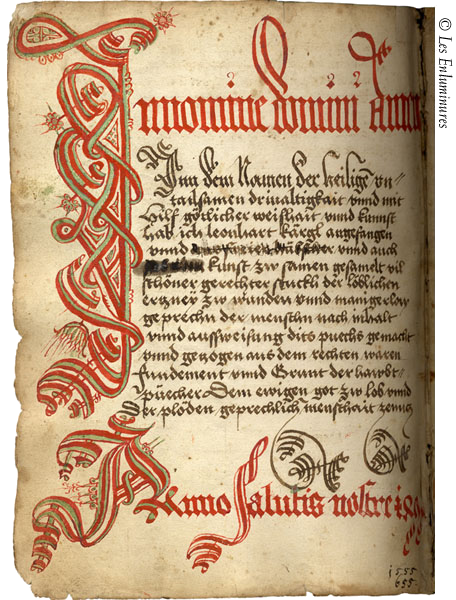 In nomine domini Amen
Inn dem Namen der heilige~ vn=
tailsamen driualtigkait vnnd mit
hilf gotlicher weishait vnnd kunnst
hab ich leonhart kaegl angefangen
vnnd vnd auch
kunst zw samen gesamelt vil
schöner gerechter stuckh der löblichen
ertzney zw wunden vnnd manigerlay
geprechn der menschn nach inhalt
vnnd aussweisung dits puechs gemacht
vnnd gezogen aus dem rechten waren
fundement vnnd Grunt der hawbt=
püecher Dem ewigen got zw lob vnnd
der plöden geprechlich menschait zenuz
Anno Salutis nostre 15
1555
655
© Les Enluminures